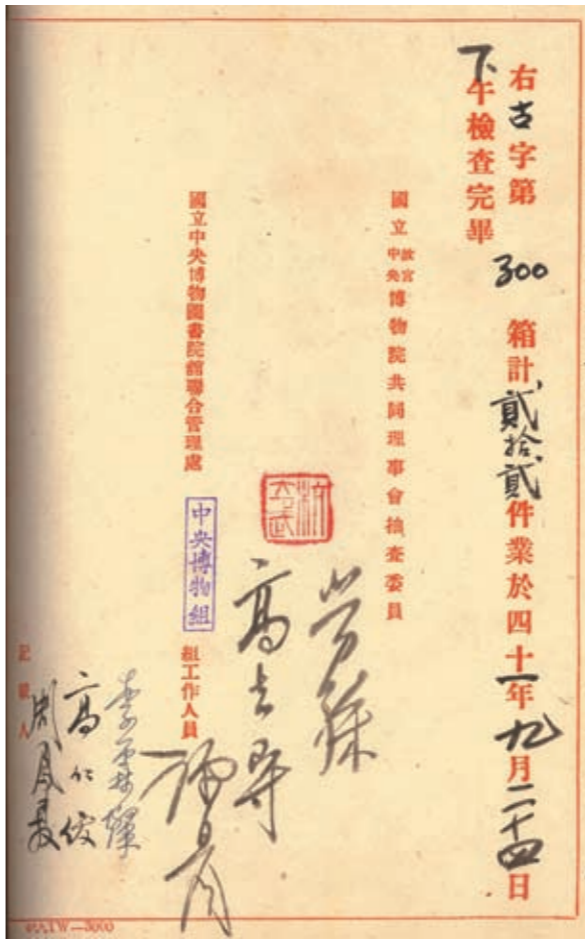 右古字第 300 箱計貳拾貳件業於四十一年九月二十四日
下午檢查完畢
國立故宮中央博物院共同理事會抽查委員
勞榦
高去尋
國立中央博物圖書院館聯合管理處 中央博物組 組工作人員
李霖燦
高仁俊
周鳳森
記錄人